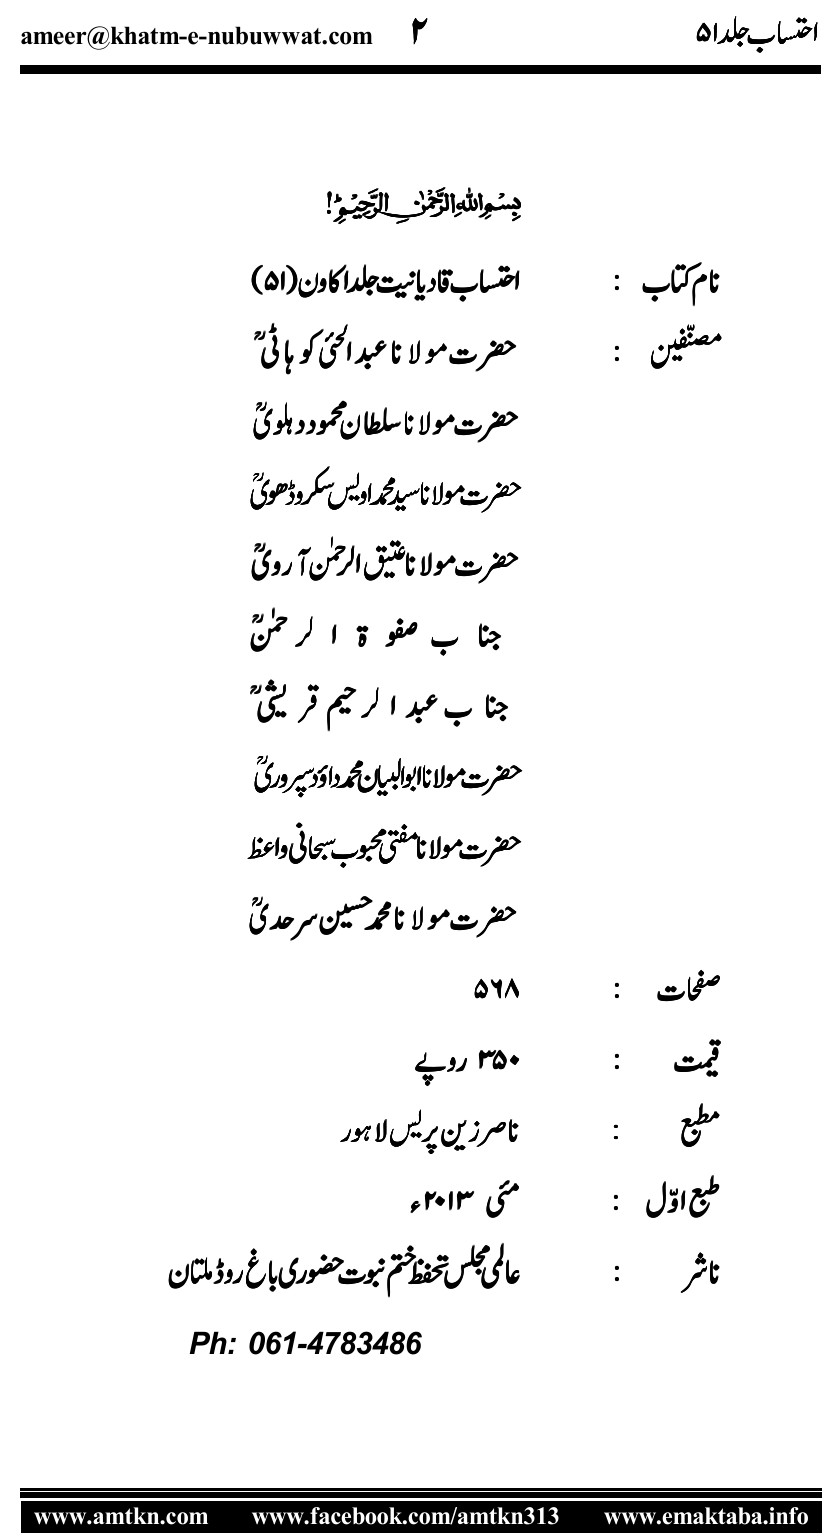 احتساب جلد ۵۱ ۲ ameer@khatm-e-nubuwwat.com
بسم اللہ الرحمٰن الرحیم!
نام کتاب : احتساب قادیانیت جلد اکاون (۵۱)
مصنّفین : حضرت مولانا عبدالحئی کوہاٹیؒ
حضرت مولانا سلطان محمود دہلویؒ
حضرت مولانا سید محمد اویس سکروڈھویؒ
حضرت مولانا عتیق الرحمٰن آرویؒ
جناب صفوۃ الرحمٰنؒ
جناب عبدالرحیم قریشیؒ
حضرت مولانا ابوالبیان محمد داؤد پسروریؒ
حضرت مولانا مفتی محبوب سبحانی واعظ
حضرت مولانا محمد حسین سرحدیؒ
صفحات : ۵۶۸
قیمت : ۳۵۰ روپے
مطبع : ناصر زین پریس لاہور
طبع اوّل : مئی ۲۰۱۳ء
ناشر : عالمی مجلس تحفظ ختم نبوت حضوری باغ روڈ ملتان
Ph: 061-4783486
www.amtkn.com www.facebook.com/amtkn313 www.emaktaba.info